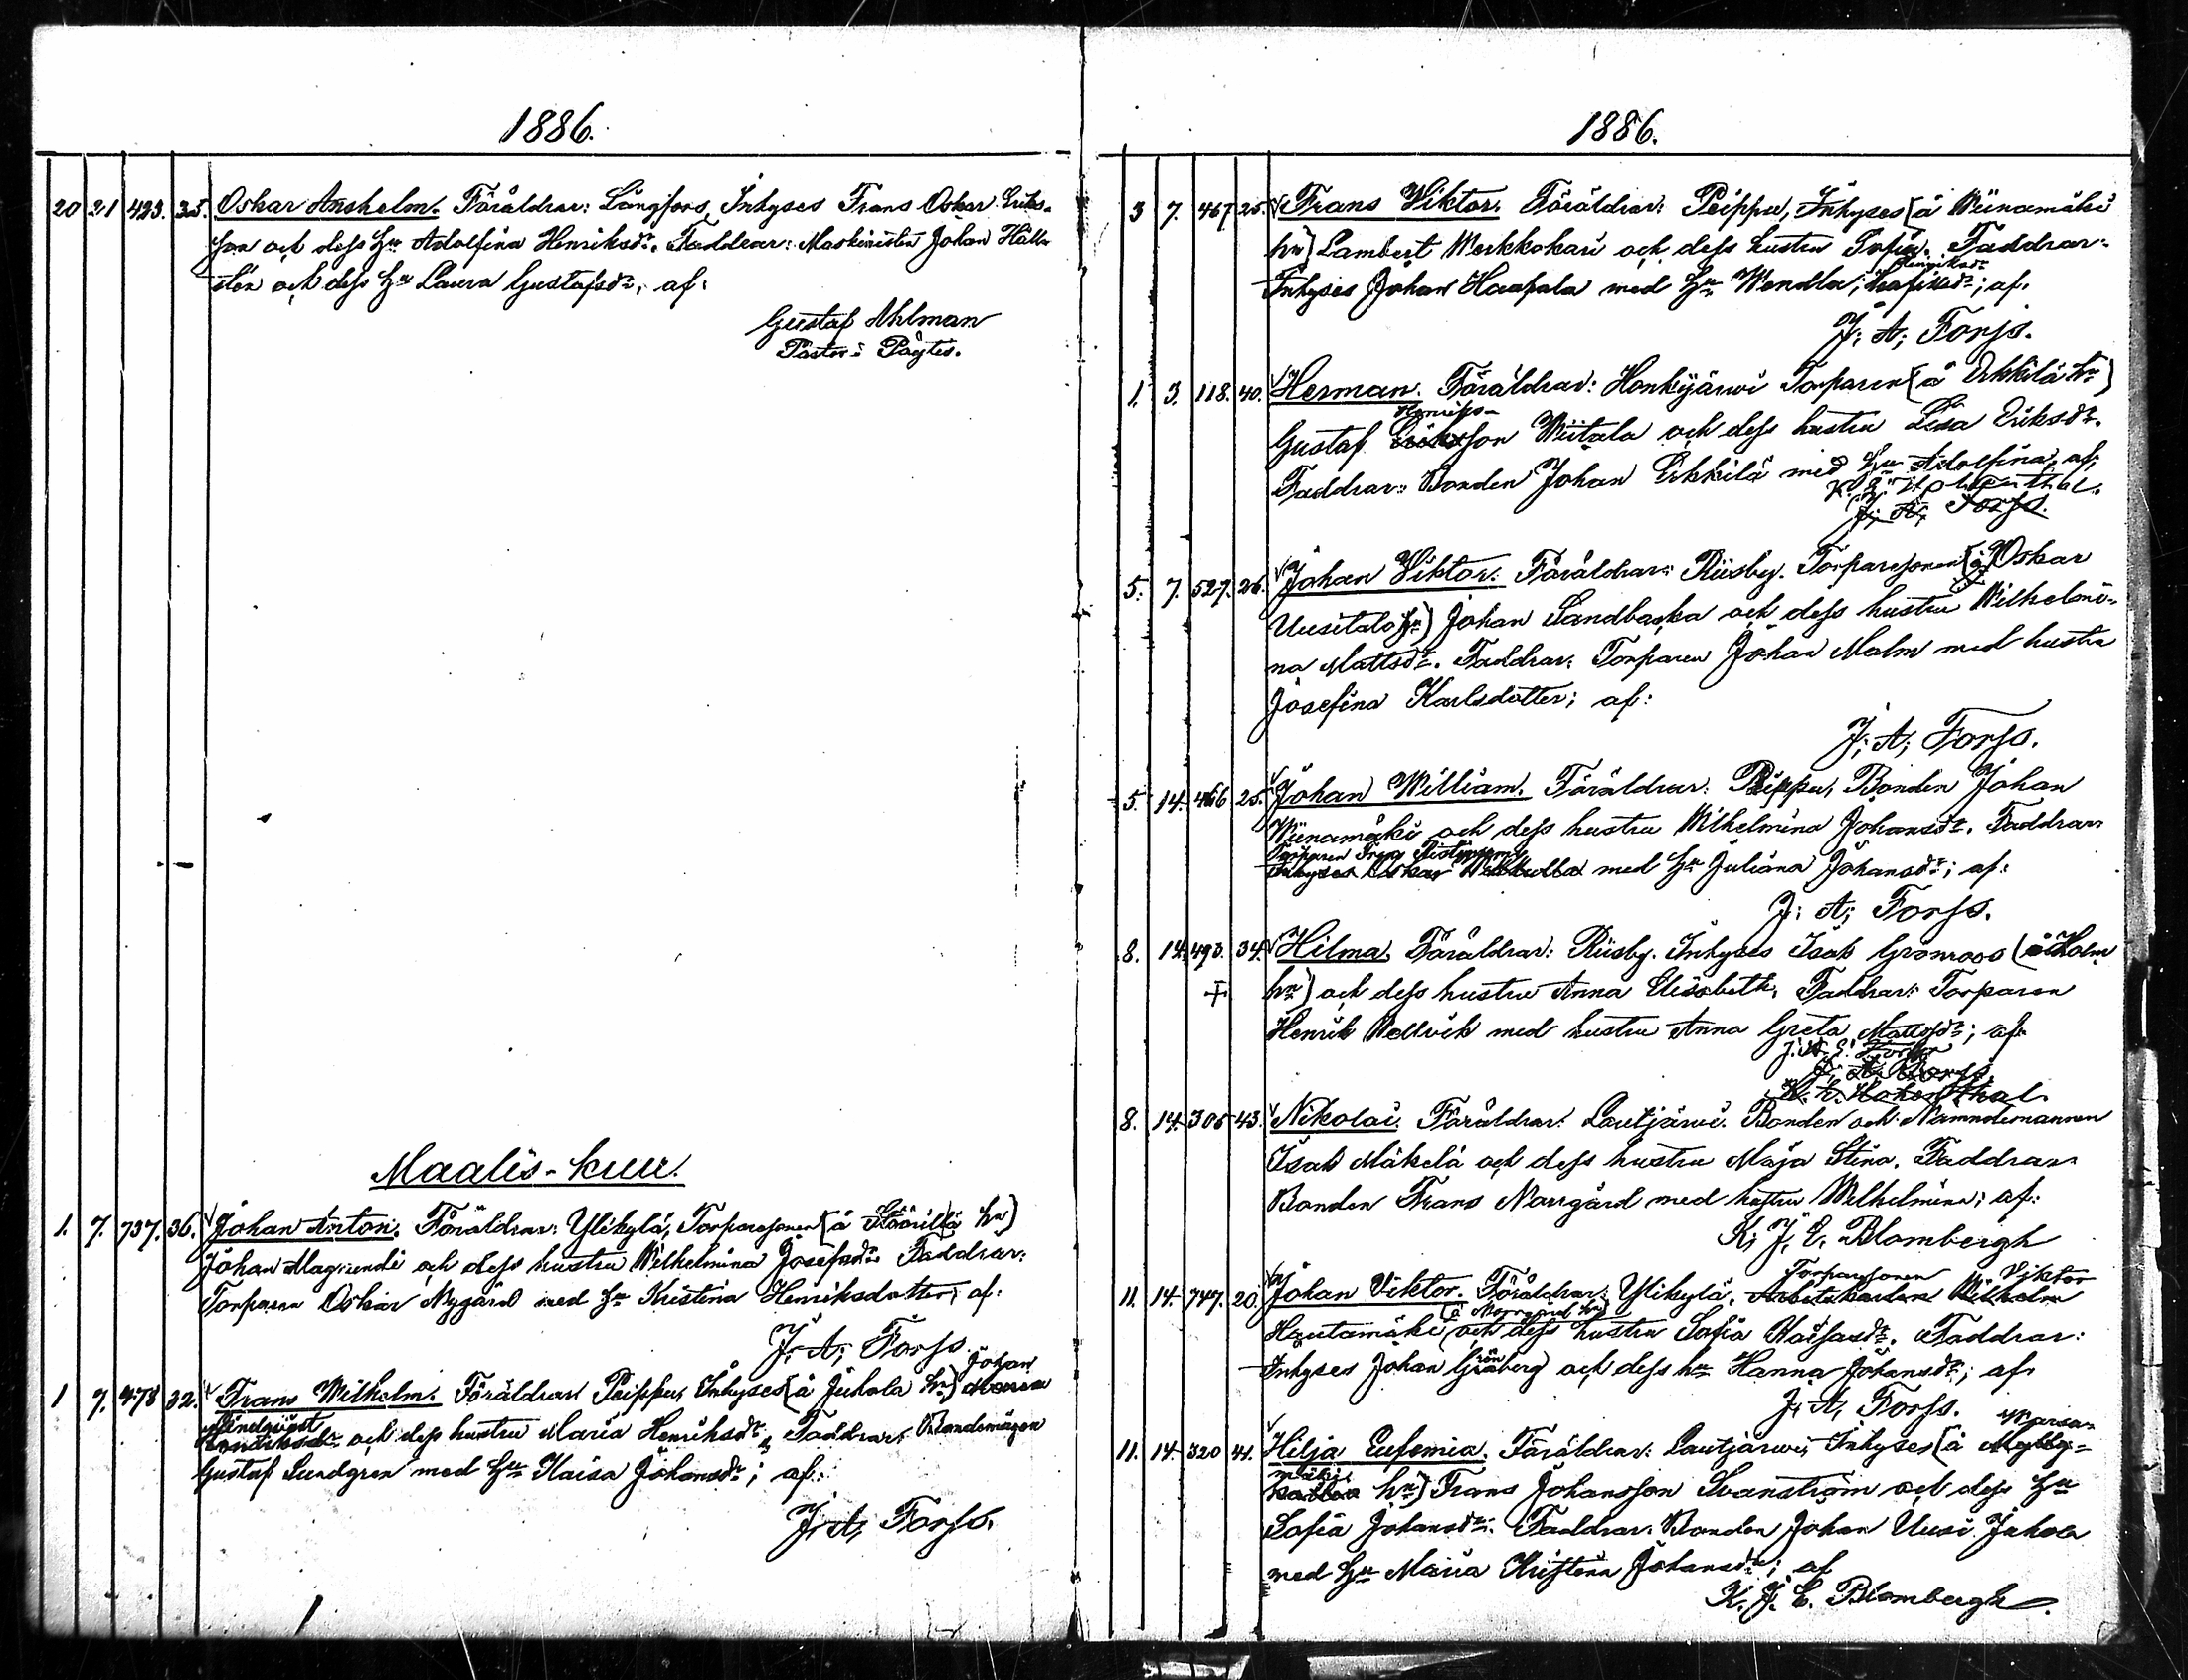 1886.
20 21 423. 35. Oskar Anshelm. Föräldrar: Långfors, Inhyses Frans Oskar Eriks-
son och dess Hu Adolfina Henriksdr. Faddrar: Maskinisten Johan Häll-
stén och dess Hu Laura Gustafsdr, af:
Gustaf Ahlman
Pastor i Påytis.
Maalis-kuu.
1. 7. 737. 36. Johan Anton. Föräldrar: Ylikylä, Torparesonen (å hn)
Johan Magnundi och dess hustru Wilhelmina Josefsdr Faddrar:
Torparen Oskar Nygård med Hu Kristina Henriksdotter, af:
J. A. Forss.
Johan
1 7. 478 32. Frans Wilhelm. Föräldrar: Peippu, Inhyses (å Juhola hn) Maria
Lindqvist
Henriksdr och dess hustru Maria Henriksdr, Faddrar: Bondemågen
Gustaf Lundgren med Hu Kaisa Johansdr; af:
J. A. Forss.
1886.
3 7. 467 25. Frans Viktor. Föräldrar: Peippu, Inhyses (å Wiinamäki
hn) Lambert Werkkokari och dess hustru Sofia. Faddrar:
Henriksdr
Inhyses Johan Haapala med Hu Wendla; af.
J. A. Forss.
1. 3. 118. 40. Herman. Föräldrar: Honkijärwi Torparen (å Erkkilä hn)
Henriks-
Gustaf Eriksson Wiitala och dess hustru Lisa Eriksdr.
Faddrar: Bonden Johan Erkkilä med Hu Adolfina, af:
K. H. Hohenthal.
J. A. Forss.
5. 7. 527. 26. Johan Viktor. Föräldrar: Riisby. Torparesonen (å Oskar
Uusitalo hn) Johan Sandbacka och dess hustru Wilhelmi-
na Mattsdr. Faddrar: Torparen Johan Malm med hustru
Josefina Karlsdotter; af:
J. A. Forss.
5. 14. 466 25. Johan William. Föräldrar: Peippu, Bonden Johan
Wiinamäki och dess hustru Wilhelmina Johansdr. Faddrar:
Torparen Frans
Inhyses Oskar med Hu Juliana Johansdr; af:
J. A. Forss.
8. 14. 493. 34. Hilma. Föräldrar: Riisby. Inhyses Isak Grönroos (å Holm
+ hn) och dess hustru Anna Elisabeth. Faddrar: Torparen
Henrik Wallvik med hustru Anna Greta Mattsdr; af:
J. A. Forss
K. H. Hohenthal.
8. 14. 305 43. Nikolai. Föräldrar: Lautjärwi. Bonden och Nämndemannen
Isak Mäkelä och dess hustru Maja Stina. Faddrar:
Bonden Frans Norrgård med hustru Wilhelmina; af:
K. J. E. Blombergh
Torparesonen Viktor
11. 14. 747. 20. Johan Viktor. Föräldrar: Ylikylä, Arbetskarlen Wilhelm
(å Norrgård hn)
Hautamäki och dess hustru Sofia Kaisasdr. Faddrar:
Inhyses Johan Grönberg och dess hu Hanna Johansdr; af
J. A. Forss.
11. 14. 320 41. Hilja Eufemia. Föräldrar: Lautjärwi, Inhyses (å
mäki
hn) Frans Johansson Svanström och dess Hu
Sofia Johansdr. Faddrar: Bonden Johan Uusi Juhola
med Hu Maria Kristina Johansdr; af
K. J. E. Blombergh.